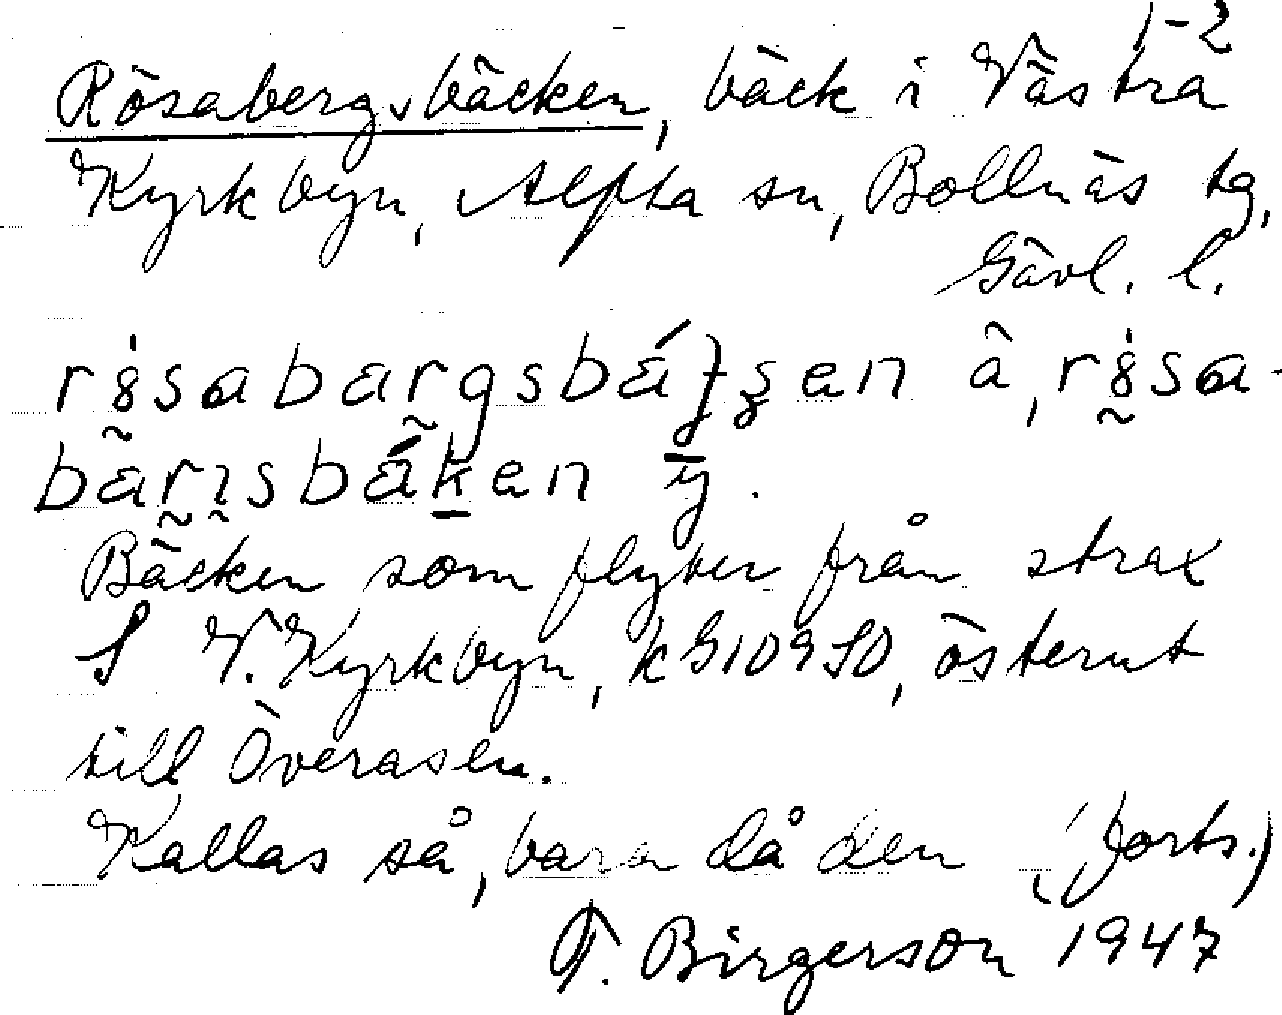 1-2
Rösabergsbäcken, bäck i Västra
Kyrkbyn, Alfta sn, Bollnäs tg,
Gävl. l.
Bäcken som flyter från strax
S V. Kyrkbyn, kG109SO, österut
till Överasen.
Kallas så, bara då den (forts.)
T. Birgerson 1947